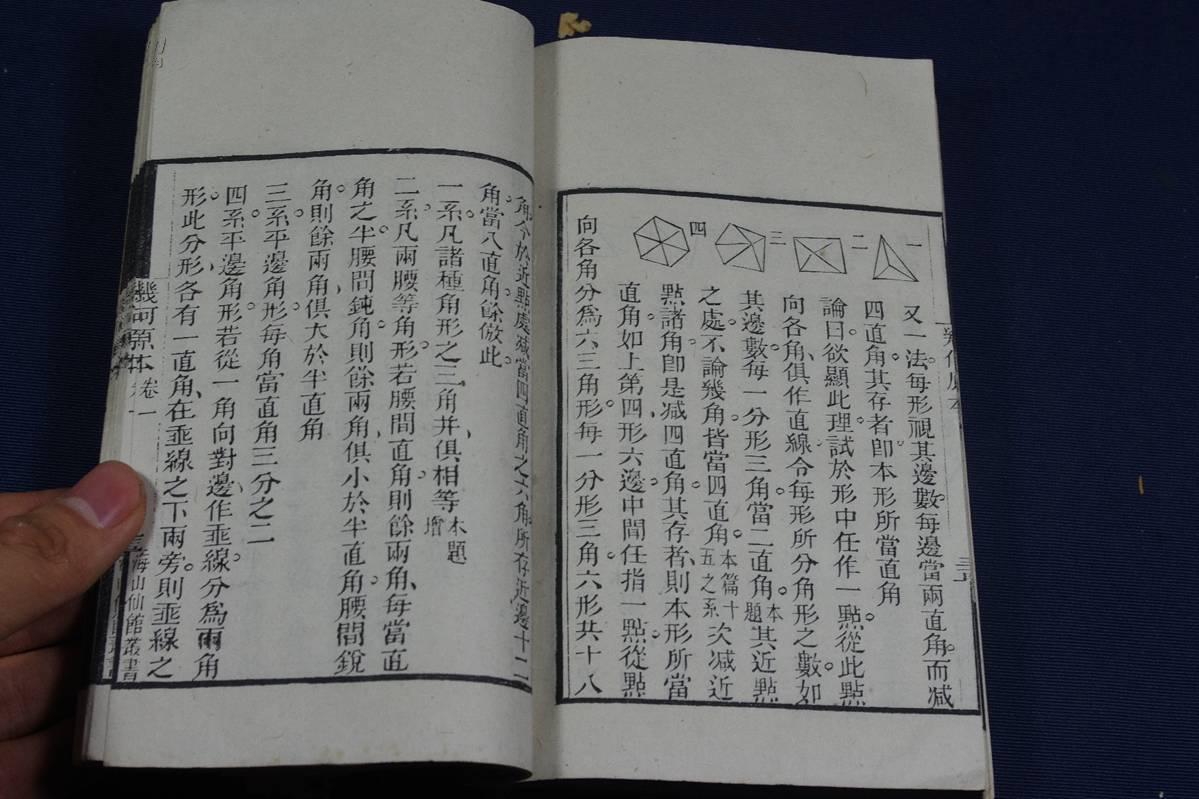 一
二
三
四
又一法每形視其邊數每邊當兩直角而減
四直角其存者卽本形所當直角
論曰欲顯此理試於形中任作一點從此點
向各角俱作直線令每形所分角形之數如
其邊數每一分形三角當二直角本題其近點
之處不論幾角皆當四直角本篇十五之系次減近
點諸角卽是減四直角其存者則本形所當
直角如上第四形六邊中間任指一點從點
向各角分爲六三角形每一分形三角六形共十八
角今於近點處減當四直角之六角所存近邊十二
角當八直角餘倣此
一系凡諸種角形之三角并俱相等本題增
二系凡兩腰等角形若腰間直角則餘兩角每當直
角之半腰間鈍角則餘兩角俱小於半直角腰間銳
角則餘兩角俱大於半直角
三系平邊角形每角當直角三分之二
四系平邊角形若從一角向對邊作垂線分爲兩角
形此分形各有一直角在垂線之下兩旁則垂線之
幾何原本 卷一
海山仙館叢書